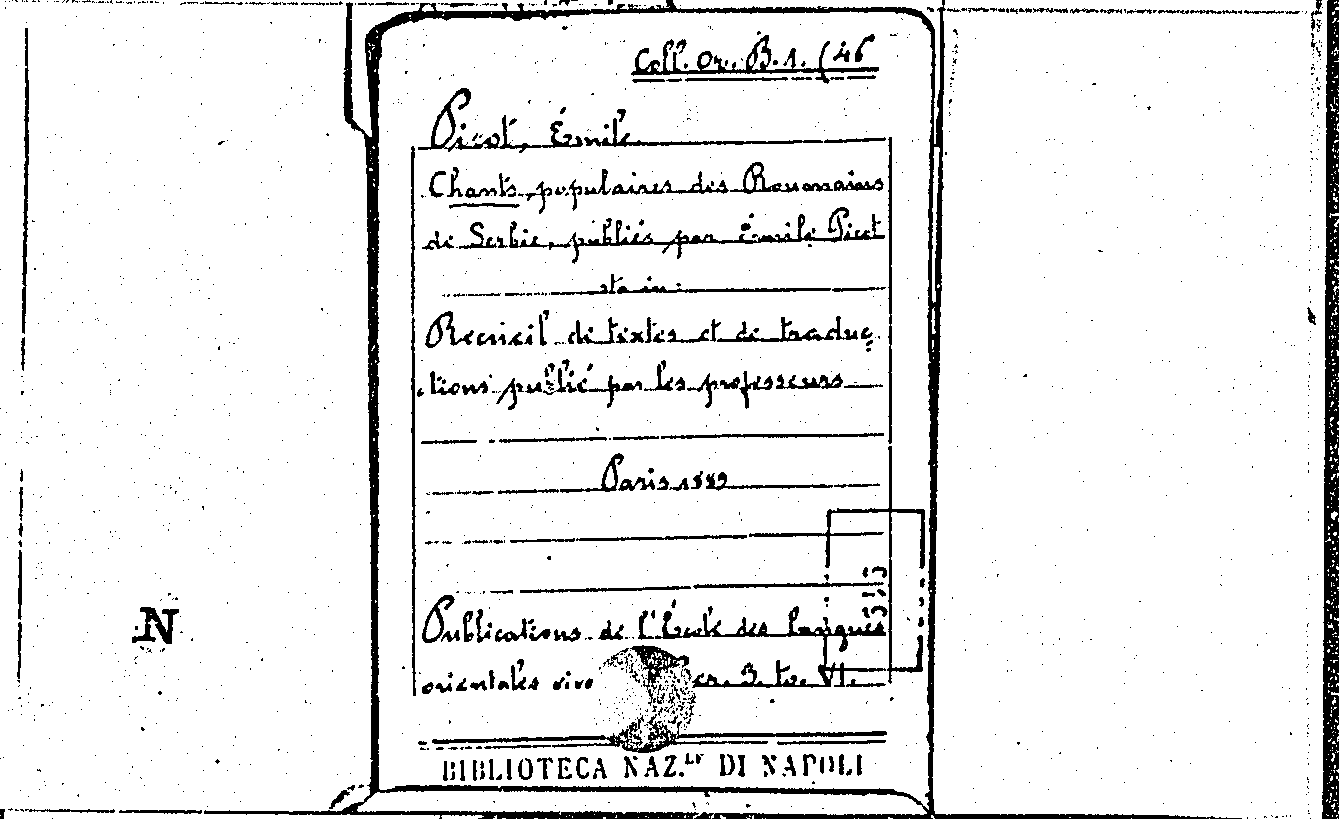 Coll. Or. B. 1. (46
Picot, Émile
Chants populaires des Roumains
de Serbie, publiés par Émile Picot
sta in:
Recueil de textes et de traduc
tions publié par les professeurs
Paris 1889
Publications de l'École des langues
orientales vive er. 3. to. VI.
N
BIBLIOTECA NAZ.LE DI NAPOLI